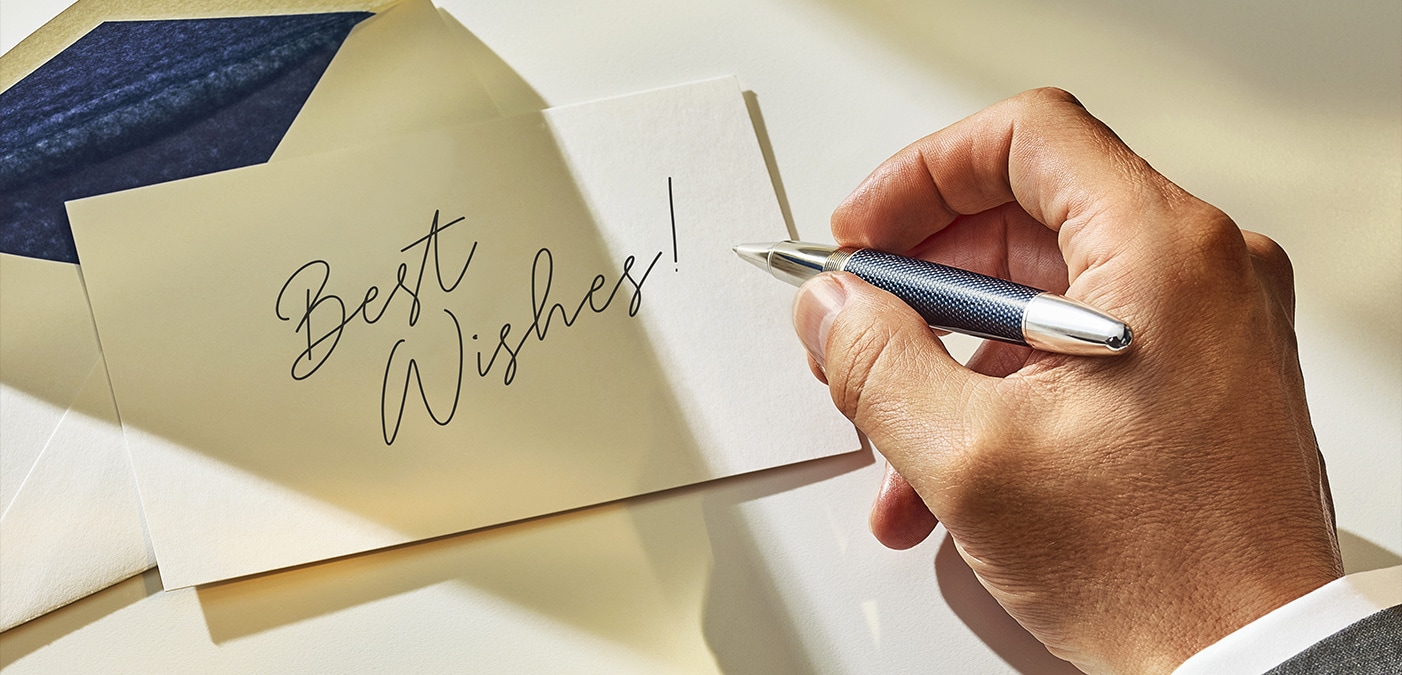 Best
Wishes!